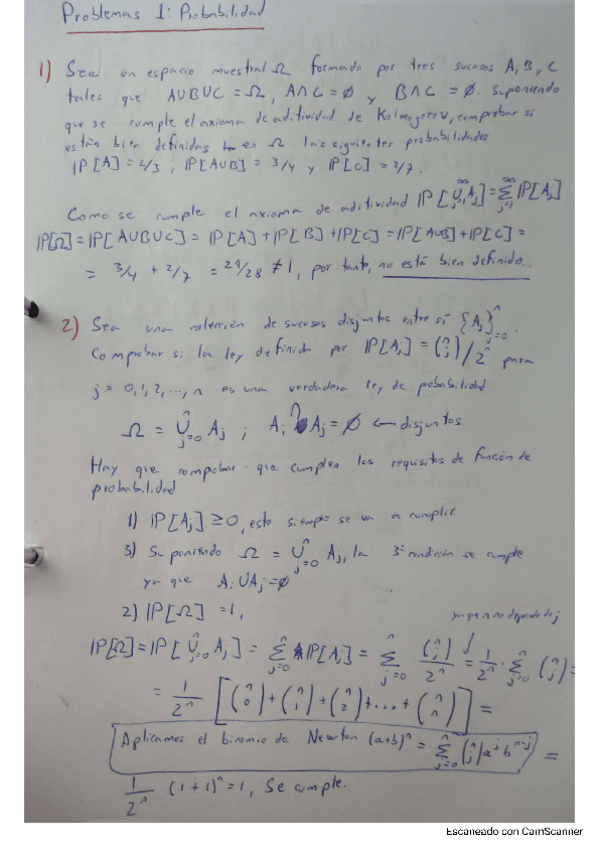 Problemas 1: Probabilidad
1) Sea un espacio muestral Ω formado por tres sucesos A, B, y C
tales que A∪B∪C = Ω, A∩C = ∅ y B∩C = ∅. Suponiendo
que se cumple el axioma de aditividad de Kolmogorov, comprobar si
están bien definidas en Ω las siguientes probabilidades
IP[A] = 2/3, IP[A∪B] = 3/4 y IP[C] = 2/7.
Como se cumple el axioma de aditividad IP[∪_{j=1}^{∞} A_j] = Σ_{j=1}^{∞} IP[A_j]
IP[Ω] = IP[A∪B∪C] = IP[A] + IP[B] + IP[C] = IP[A∪B] + IP[C] =
= 3/4 + 2/7 = 29/28 ≠ 1, por tanto, no está bien definido.
2) Sea una colección de sucesos disjuntos entre sí {A_j}_{j=0}^{n}.
Comprobar si la ley definida por IP[A_j] = (n j)/2^n para
j = 0, 1, 2, ..., n es una verdadera ley de pobabilidad
Ω = ∪_{j=0}^{n} A_j ; A_i ∩ A_j = ∅ ← disjuntos
Hay que comprobar que cumplen los requisitos de función de
probabilidad
1) IP[A_j] ≥ 0, esto siempre se va a cumplir
3) Suponiendo Ω = ∪_{j=0}^{n} A_j, la 3ª condición se cumple
ya que A_i ∪ A_j = ∅
2) IP[Ω] = 1,
ya que n no depende de j
IP[Ω] = IP[∪_{j=0}^{n} A_j] = Σ_{j=0}^{n} IP[A_j] = Σ_{j=0}^{n} (n j)/2^n = 1/2^n · Σ_{j=0}^{n} (n j) =
= 1/2^n [(n 0) + (n 1) + (n 2) + ... + (n n)] =
Aplicamos el binomio de Newton (a+b)^n = Σ_{j=0}^{n} (n j) a^j b^{n-j} =
1/2^n (1+1)^n = 1, Se cumple.
Escaneado con CamScanner